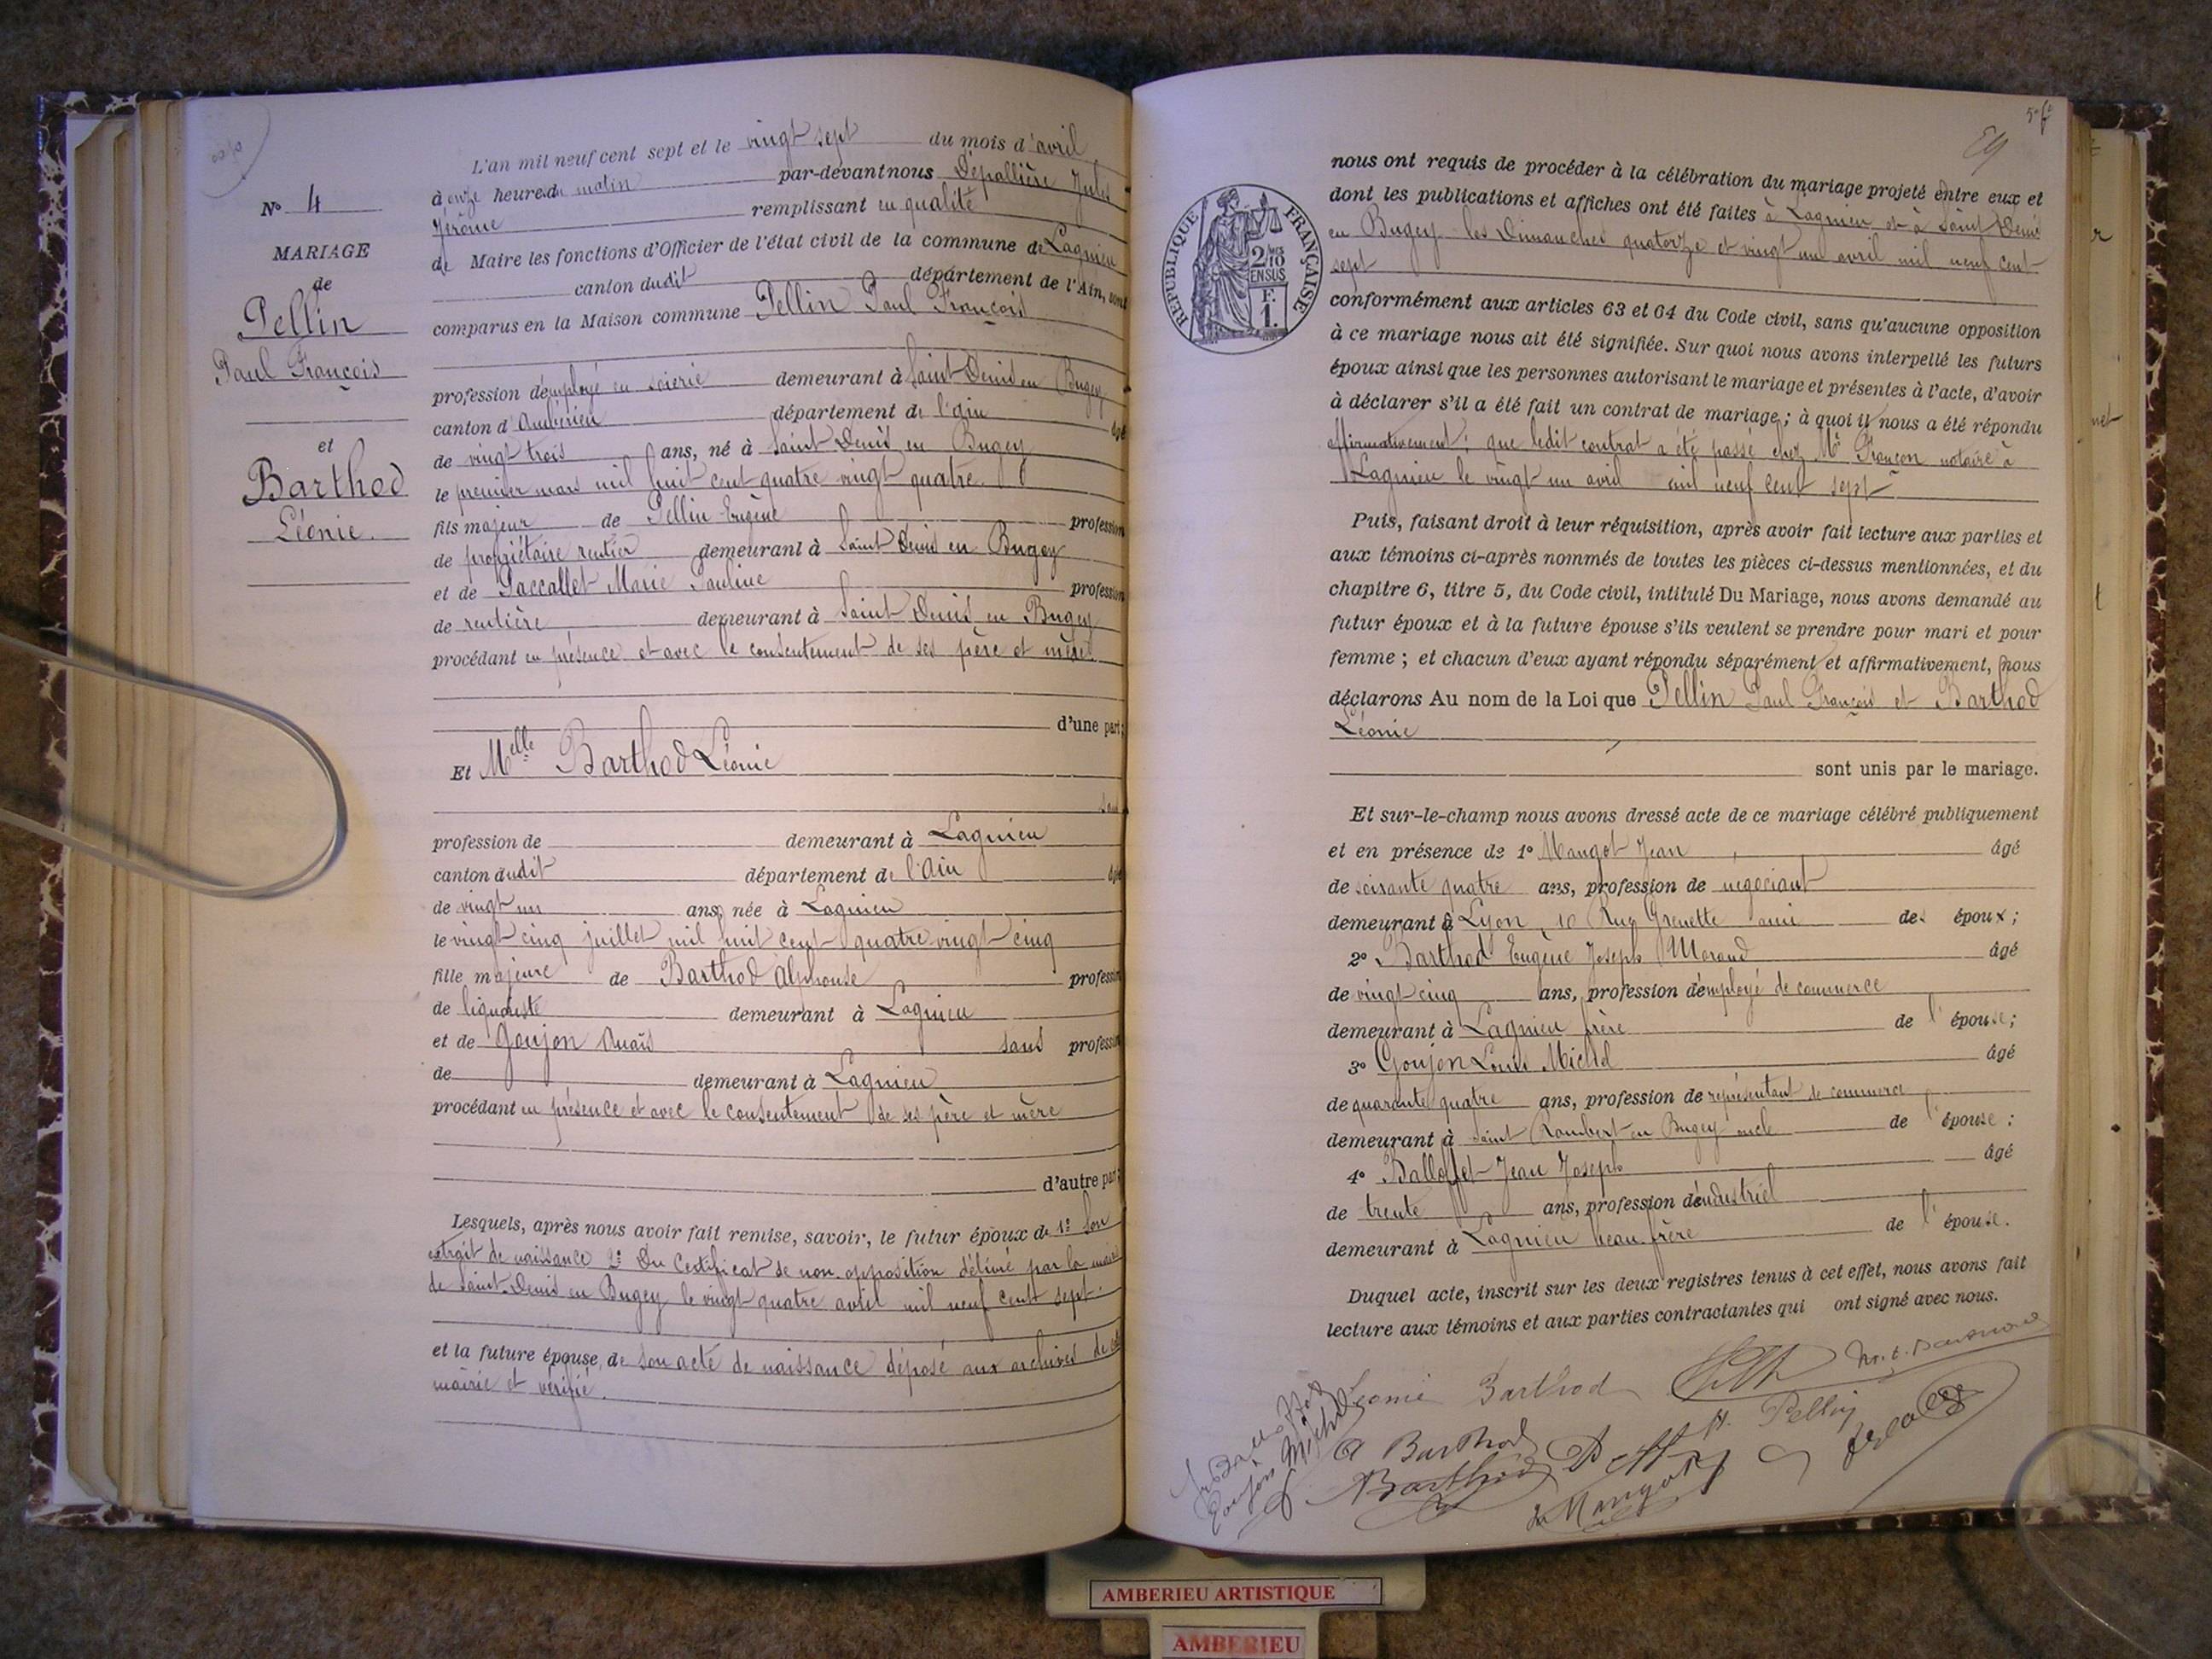 N° 4
MARIAGE
de
Pellin
Paul François
et
Barthod
Léonie.
L'an mil neuf cent sept et le vingt sept du mois d'avril
à onze heures du matin par-devant nous Dépallière Jules
Jérôme remplissant en qualité
de Maire les fonctions d'Officier de l'état civil de la commune de Lagnieu
canton dudit département de l'Ain, sont
comparus en la Maison commune Pellin Paul François
profession d'employé en soierie demeurant à Saint Denis en Bugey
canton d'Ambérieu département de l'Ain âgé
de vingt trois ans, né à Saint Denis en Bugey
le premier mars mil huit cent quatre vingt quatre
fils majeur de Pellin Eugène profession
de propriétaire rentier demeurant à Saint Denis en Bugey
et de Paccallet Marie Pauline profession
de rentière demeurant à Saint Denis en Bugey
procédant en présence et avec le consentement de ses père et mère
d'une part;
Et Melle Barthod Léonie
sans
profession de demeurant à Lagnieu
canton dudit département de l'Ain âgée
de vingt un ans, née à Lagnieu
le vingt cinq juillet mil huit cent quatre vingt cinq
fille majeure de Barthod Alphonse profession
de liquoriste demeurant à Lagnieu
et de Goujon Anaïs sans profession
de demeurant à Lagnieu
procédant en présence et avec le consentement de ses père et mère
d'autre part;
Lesquels, après nous avoir fait remise, savoir, le futur époux de 1° Son
extrait de naissance 2° Du Certificat de non opposition délivré par la mairie
de Saint-Denis en Bugey le vingt quatre avril mil neuf cent sept.
et la future épouse, de son acte de naissance déposé aux archives de cette
mairie et vérifié.
5e ft
RÉPUBLIQUE FRANÇAISE
2/10
EN SUS
F.
1.
nous ont requis de procéder à la célébration du mariage projeté entre eux et
dont les publications et affiches ont été faites à Lagnieu et à Saint Denis
en Bugey les Dimanches quatorze et vingt un avril mil neuf cent
sept
conformément aux articles 63 et 64 du Code civil, sans qu'aucune opposition
à ce mariage nous ait été signifiée. Sur quoi nous avons interpellé les futurs
époux ainsi que les personnes autorisant le mariage et présentes à l'acte, d'avoir
à déclarer s'il a été fait un contrat de mariage; à quoi il nous a été répondu
affirmativement; que ledit contrat a été passé chez Me Françon notaire à
Lagnieu le vingt un avril mil neuf cent sept
Puis, faisant droit à leur réquisition, après avoir fait lecture aux parties et
aux témoins ci-après nommés de toutes les pièces ci-dessus mentionnées, et du
chapitre 6, titre 5, du Code civil, intitulé Du Mariage, nous avons demandé au
futur époux et à la future épouse s'ils veulent se prendre pour mari et pour
femme; et chacun d'eux ayant répondu séparément et affirmativement, nous
déclarons Au nom de la Loi que Pellin Paul François et Barthod
Léonie
sont unis par le mariage.
Et sur-le-champ nous avons dressé acte de ce mariage célébré publiquement
et en présence de 1° Mangot Jean âgé
de soixante quatre ans, profession de négociant
demeurant à Lyon, 10 Rue Grenette ami des époux;
2° Barthod Eugène Joseph Morand âgé
de vingt cinq ans, profession d'employé de commerce
demeurant à Lagnieu frère de l'épouse;
3° Goujon Louis Michel âgé
de quarante quatre ans, profession de représentant de commerce
demeurant à Saint Rambert en Bugey oncle de l'épouse;
4° Balloffet Jean Joseph âgé
de trente ans, profession d'industriel
demeurant à Lagnieu beau frère de l'épouse.
Duquel acte, inscrit sur les deux registres tenus à cet effet, nous avons fait
lecture aux témoins et aux parties contractantes qui ont signé avec nous.
Léonie Barthod
Goujon Michel
A Barthod
Pellin
Barthod
J. Mangot
AMBERIEU ARTISTIQUE
AMBERIEU